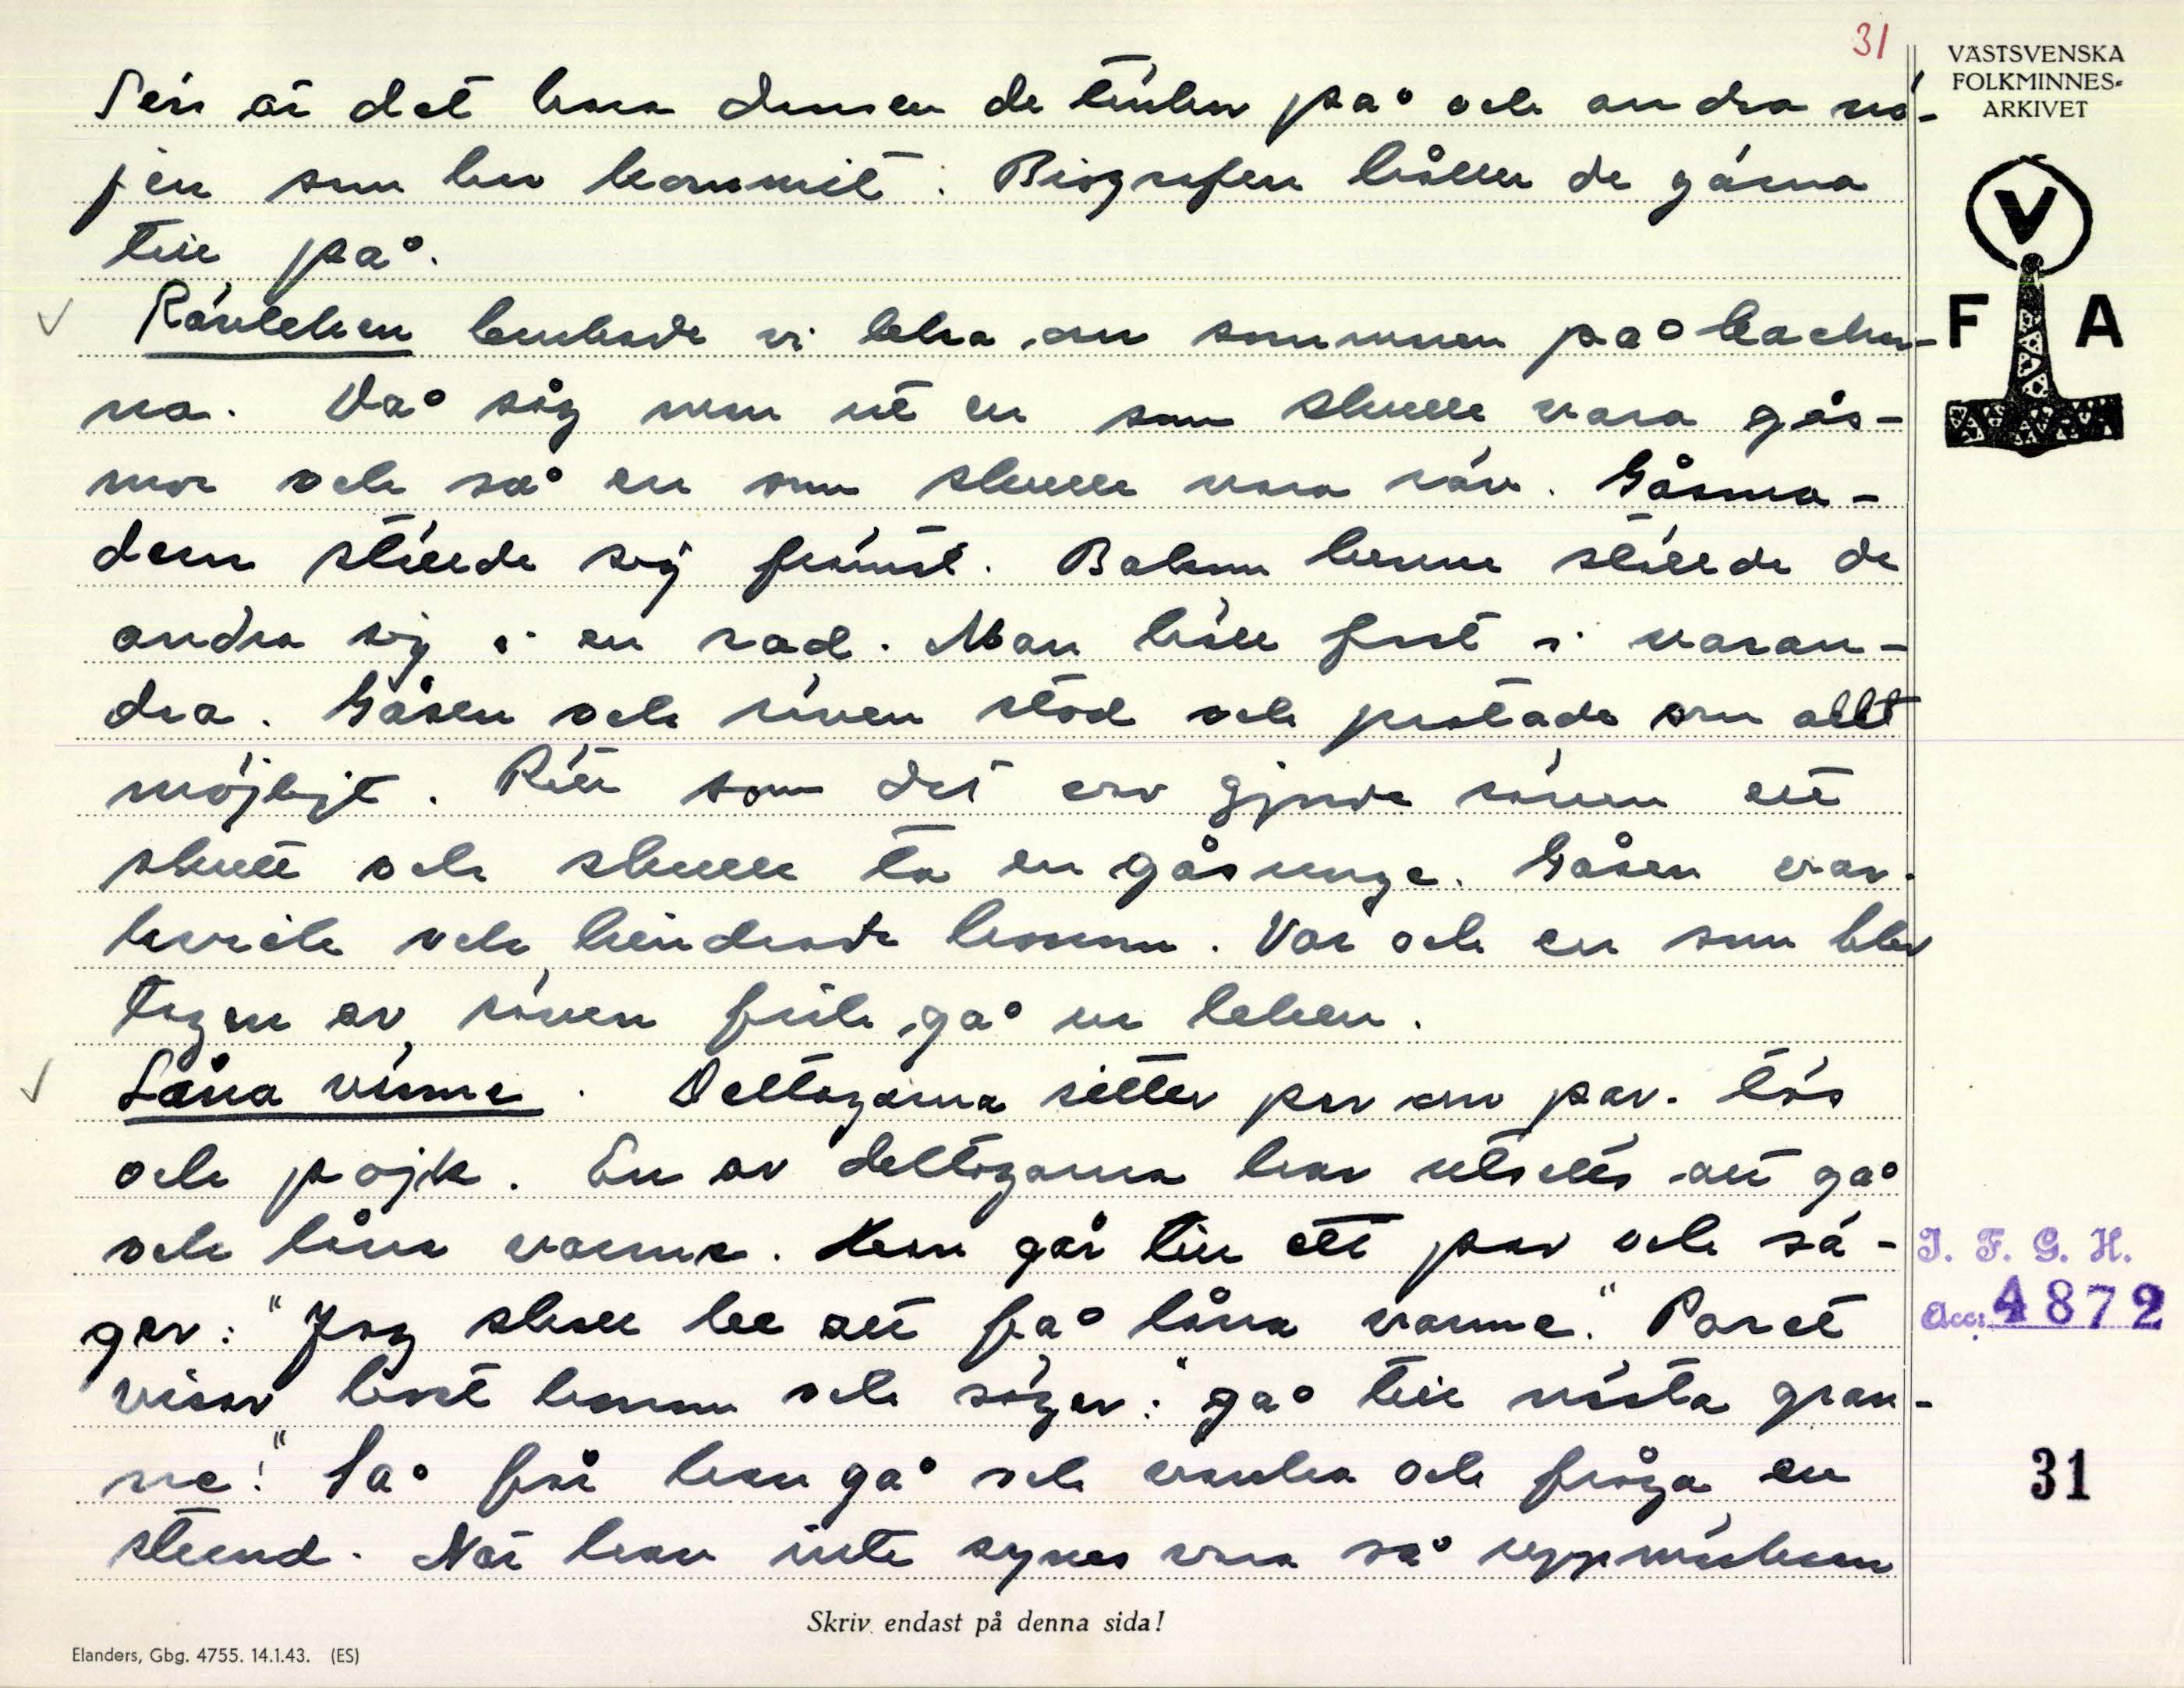 31
VÄSTSVENSKA
FOLKMINNES-
ARKIVET
V
F A
Sen är det bara dansen de tänker på och andra nö-
jen som har kommit. Biografen håller de gärna
till på.
Rävleken brukade vi leka om sommaren på backar-
na. Då såg man ut en som skulle vara gås-
mor och så en som skulle vara räv. Gåsmo-
dern ställde sig främst. Bakom henne ställde de
andra sig i en rad. Man höll fast i varan-
dra. Gåsen och räven stod och pratade om allt
möjligt. Rätt som det var gjorde räven ett
skutt och skulle ta en gåsunge. Gåsen var
kvick och hindrade honom. Var och en som blev
tagen av räven fick gå ur leken.
Låna värme. Deltagarna sitter par om par. tös
och pojk. En av deltagarna har utsetts att gå
och låna varme. Han går till ett par och sä-
ger: "Jag skall be att få låna varme." Paret
visar bort honom och säger: "gå till nästa gran-
ne!" Så får han gå och vanka och fråga en
stund. När han inte synes vara så uppmärksam
I. F. G. H.
Acc: 4872
31
Skriv endast på denna sida!
Elanders, Gbg. 4755. 14.1.43. (ES)